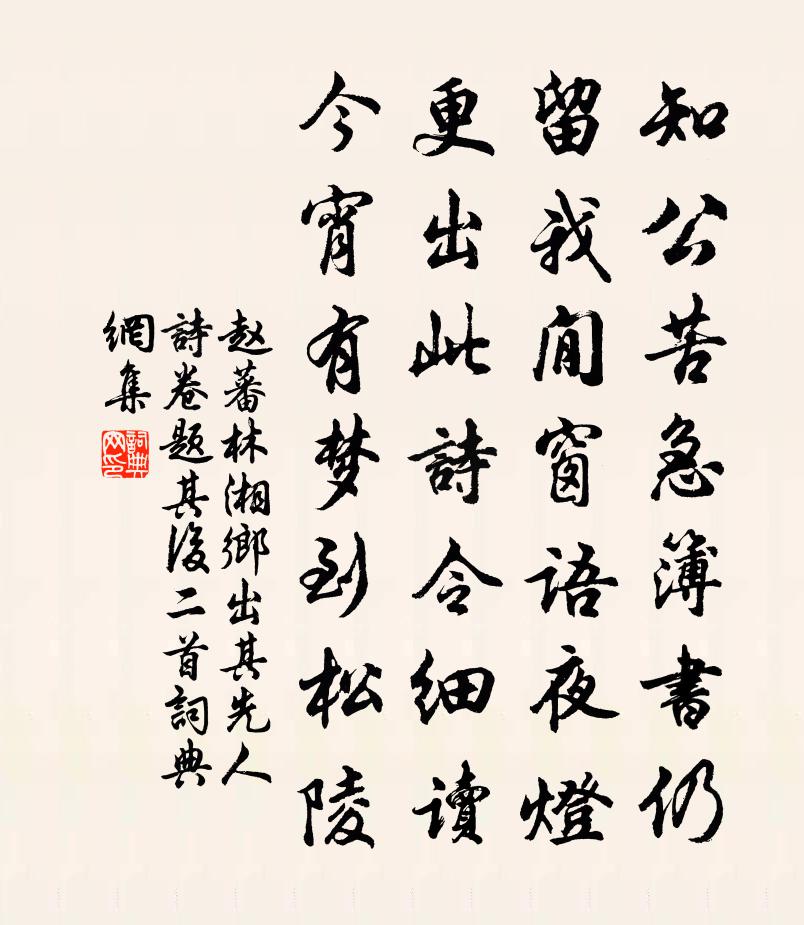 知公苦急簿書仍
留我閒窗語夜燈
更出此詩令細讀
今宵有梦到松陵
赵蕃林湘鄉出其先人
詩卷题其後二首詞典
網集
詞典網印